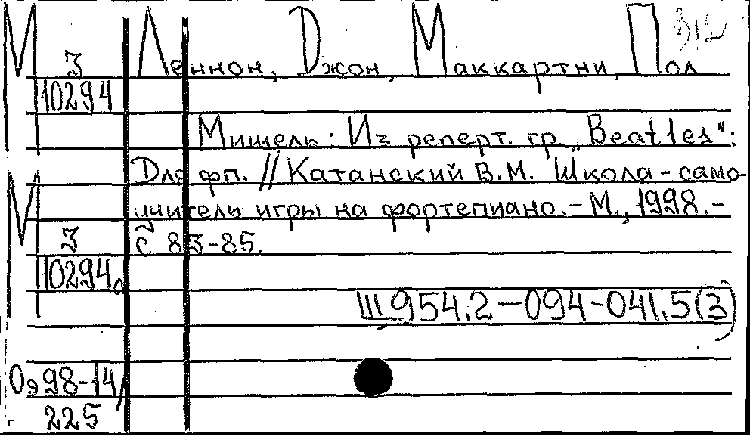 М З 10294 Леннон, Джон, Маккартни, Пол
Мишель: Из реперт. гр. „Beatles“:
Для фп. // Катанский В.М. Школа-само-
учитель игры на фортепиано. - М., 1998. -
С. 83-85.
М З 10294а
Щ954.2-094-041.5(3)
Оэ 98-14/
225